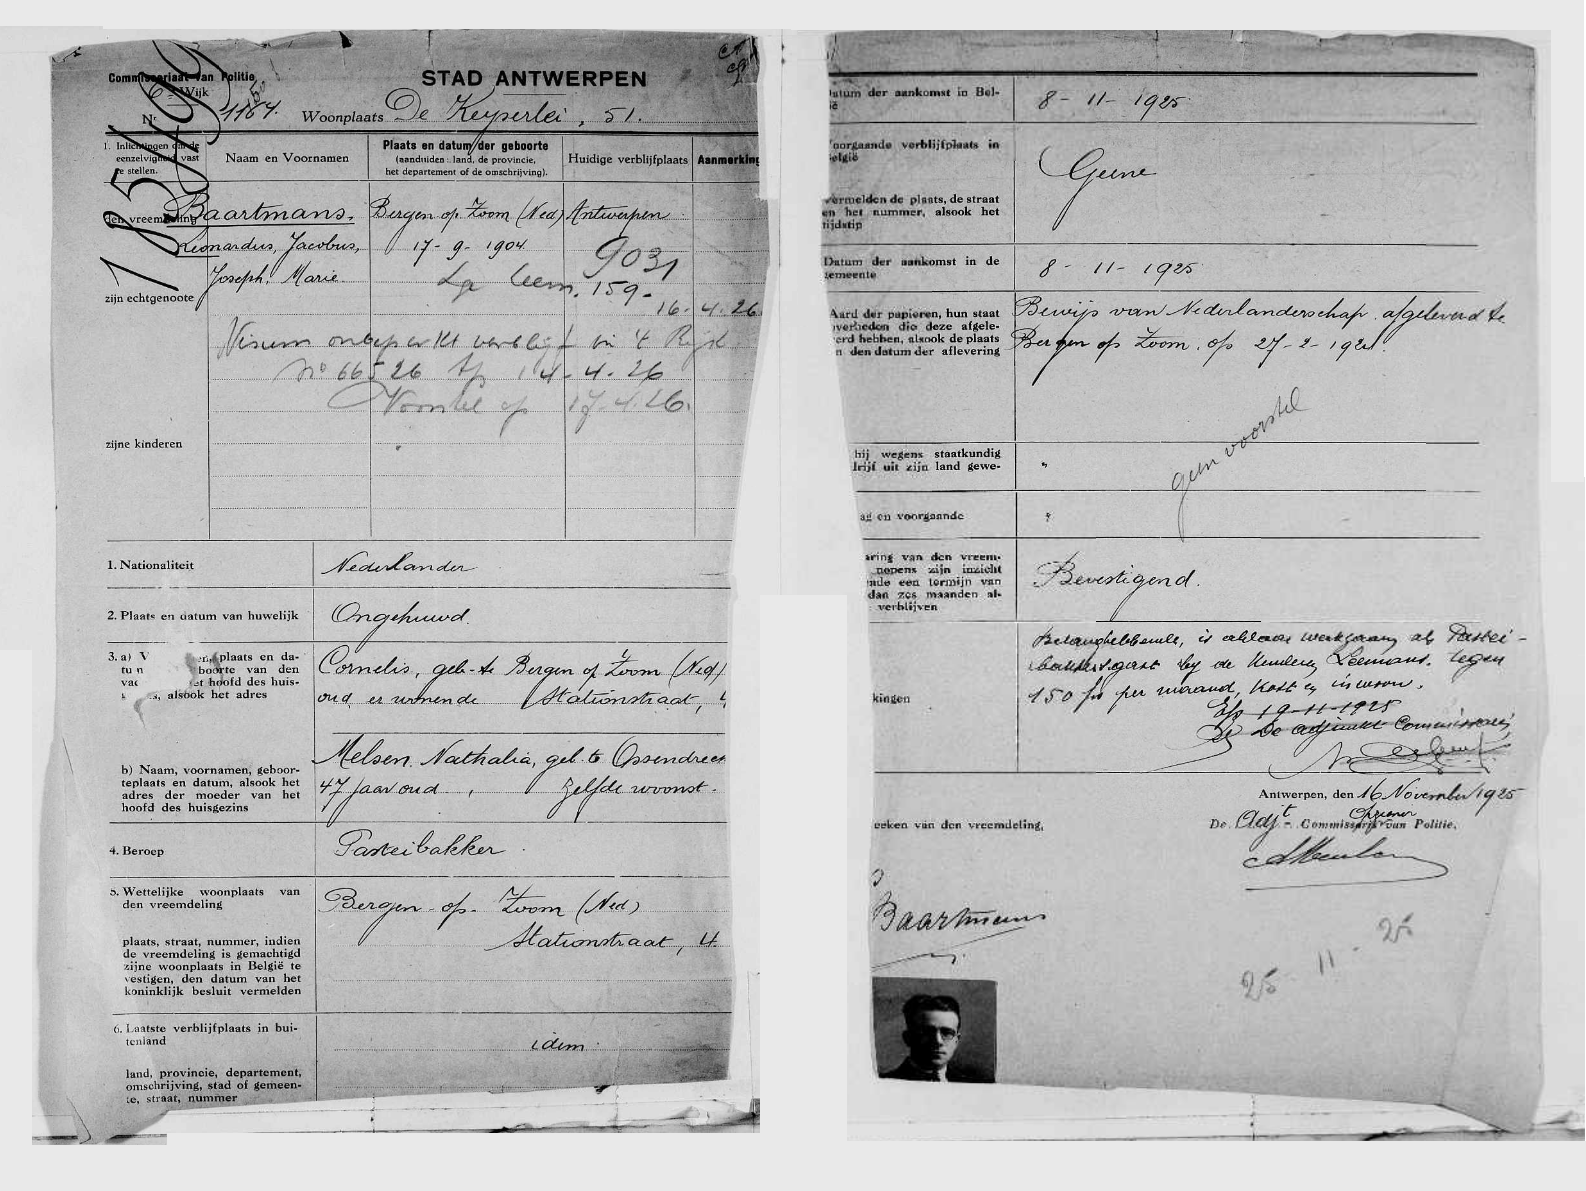 Commissariaat van Politie
6e Wijk
STAD ANTWERPEN
Nr 1164. Woonplaats De Keyserlei, 51.
185199
1. Inlichtingen om de eenzelvigheid vast te stellen.
Naam en Voornamen
Plaats en datum der geboorte
(aanduiden : land, de provincie,
het departement of de omschrijving).
Huidige verblijfplaats
Aanmerking
den vreemdeling
Baartmans. Bergen op Zoom (Ned) Antwerpen
Leonardus, Jacobus, 17-9-1904
Joseph, Marie
9031
159-
16-4-26
zijn echtgenote
Visum onbeperkt verblijf in 4 Rijst
No 66526 op 14-4-26
Voorstel op 17-4-26.
zijne kinderen
1. Nationaliteit
Nederlander
2. Plaats en datum van huwelijk
Ongehuwd.
3. a)
en, plaats en da-
boorte van den
et hoofd des huis-
, alsook het adres
Cornelis, geb. te Bergen op Zoom (Ned)
oud en wonende Stationstraat, 4
b) Naam, voornamen, geboor-
teplaats en datum, alsook het
adres der moeder van het
hoofd des huisgezins
Melsen Nathalia, geb. te Ossendrecht
47 jaar oud, zelfde woonst.
4. Beroep
Pasteibakker
5. Wettelijke woonplaats van
den vreemdeling
Bergen-op-Zoom (Ned)
Stationstraat, 4
plaats, straat, nummer, indien
de vreemdeling is gemachtigd
zijne woonplaats in België te
vestigen, den datum van het
koninklijk besluit vermelden
6. Laatste verblijfplaats in bui-
tenland
idem
land, provincie, departement,
omschrijving, stad of gemeen-
te, straat, nummer
Datum der aankomst in Bel-
ië
8-11-1925
oorgaande verblijfplaats in
elgië
Geene
vermelden de plaats, de straat
en het nummer, alsook het
tijdstip
Datum der aankomst in de
gemeente
8-11-1925
Aard der papieren, hun staat
overheden die deze afgele-
verd hebben, alsook de plaats
n den datum der aflevering
Bewijs van Nederlanderschap afgeleverd te
Bergen op Zoom, op 27-2-192
geen voorstel
hij wegens staatkundig
drijf uit zijn land gewe-
"
ag en voorgaande
"
aring van den vreem-
nopens zijn inzicht
nde een termijn van
dan zes maanden al-
verblijven
Bevestigend.
kingen
Belanghebbende, is alhier werkzaam als Pastei-
bakkersgast bij de Leemans, tegen
150 frs per maand, kost en inwoon.
19-11-1925
De adjunkt Commissaris,
Antwerpen, den 16 November 1925
De Adjt Commissaris van Politie.
eeken van den vreemdeling,
Baartmans
25-11-25